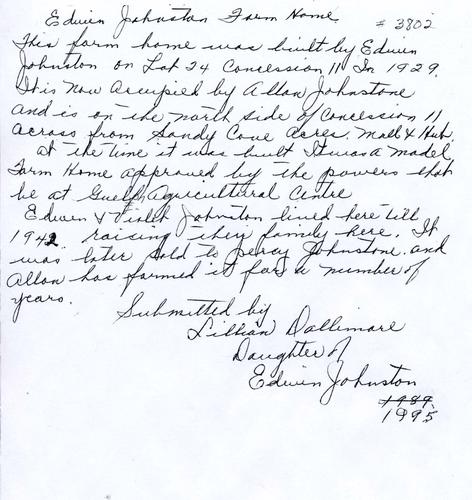 Edwin Johnston Farm Home # 3802
This farm home was built by Edwin
Johnston on Lot 24 Concession 11 In 1929.
It is now occupied by Allan Johnstone
and is on the north side of Concession 11
across from Sandy Cove Acres. Mall & Hub.
at the time it was built It was a model
Farm Home approved by the powers that
be at Guelph Agricultural Centre
Edwin & Violet Johnston lived here till
1942 raising their family here. It
was later sold to Percy Johnstone. and
Allan has farmed it for a number of
years.
Submitted by
Lillian Dallimore
Daughter of
Edwin Johnston
1989
1995